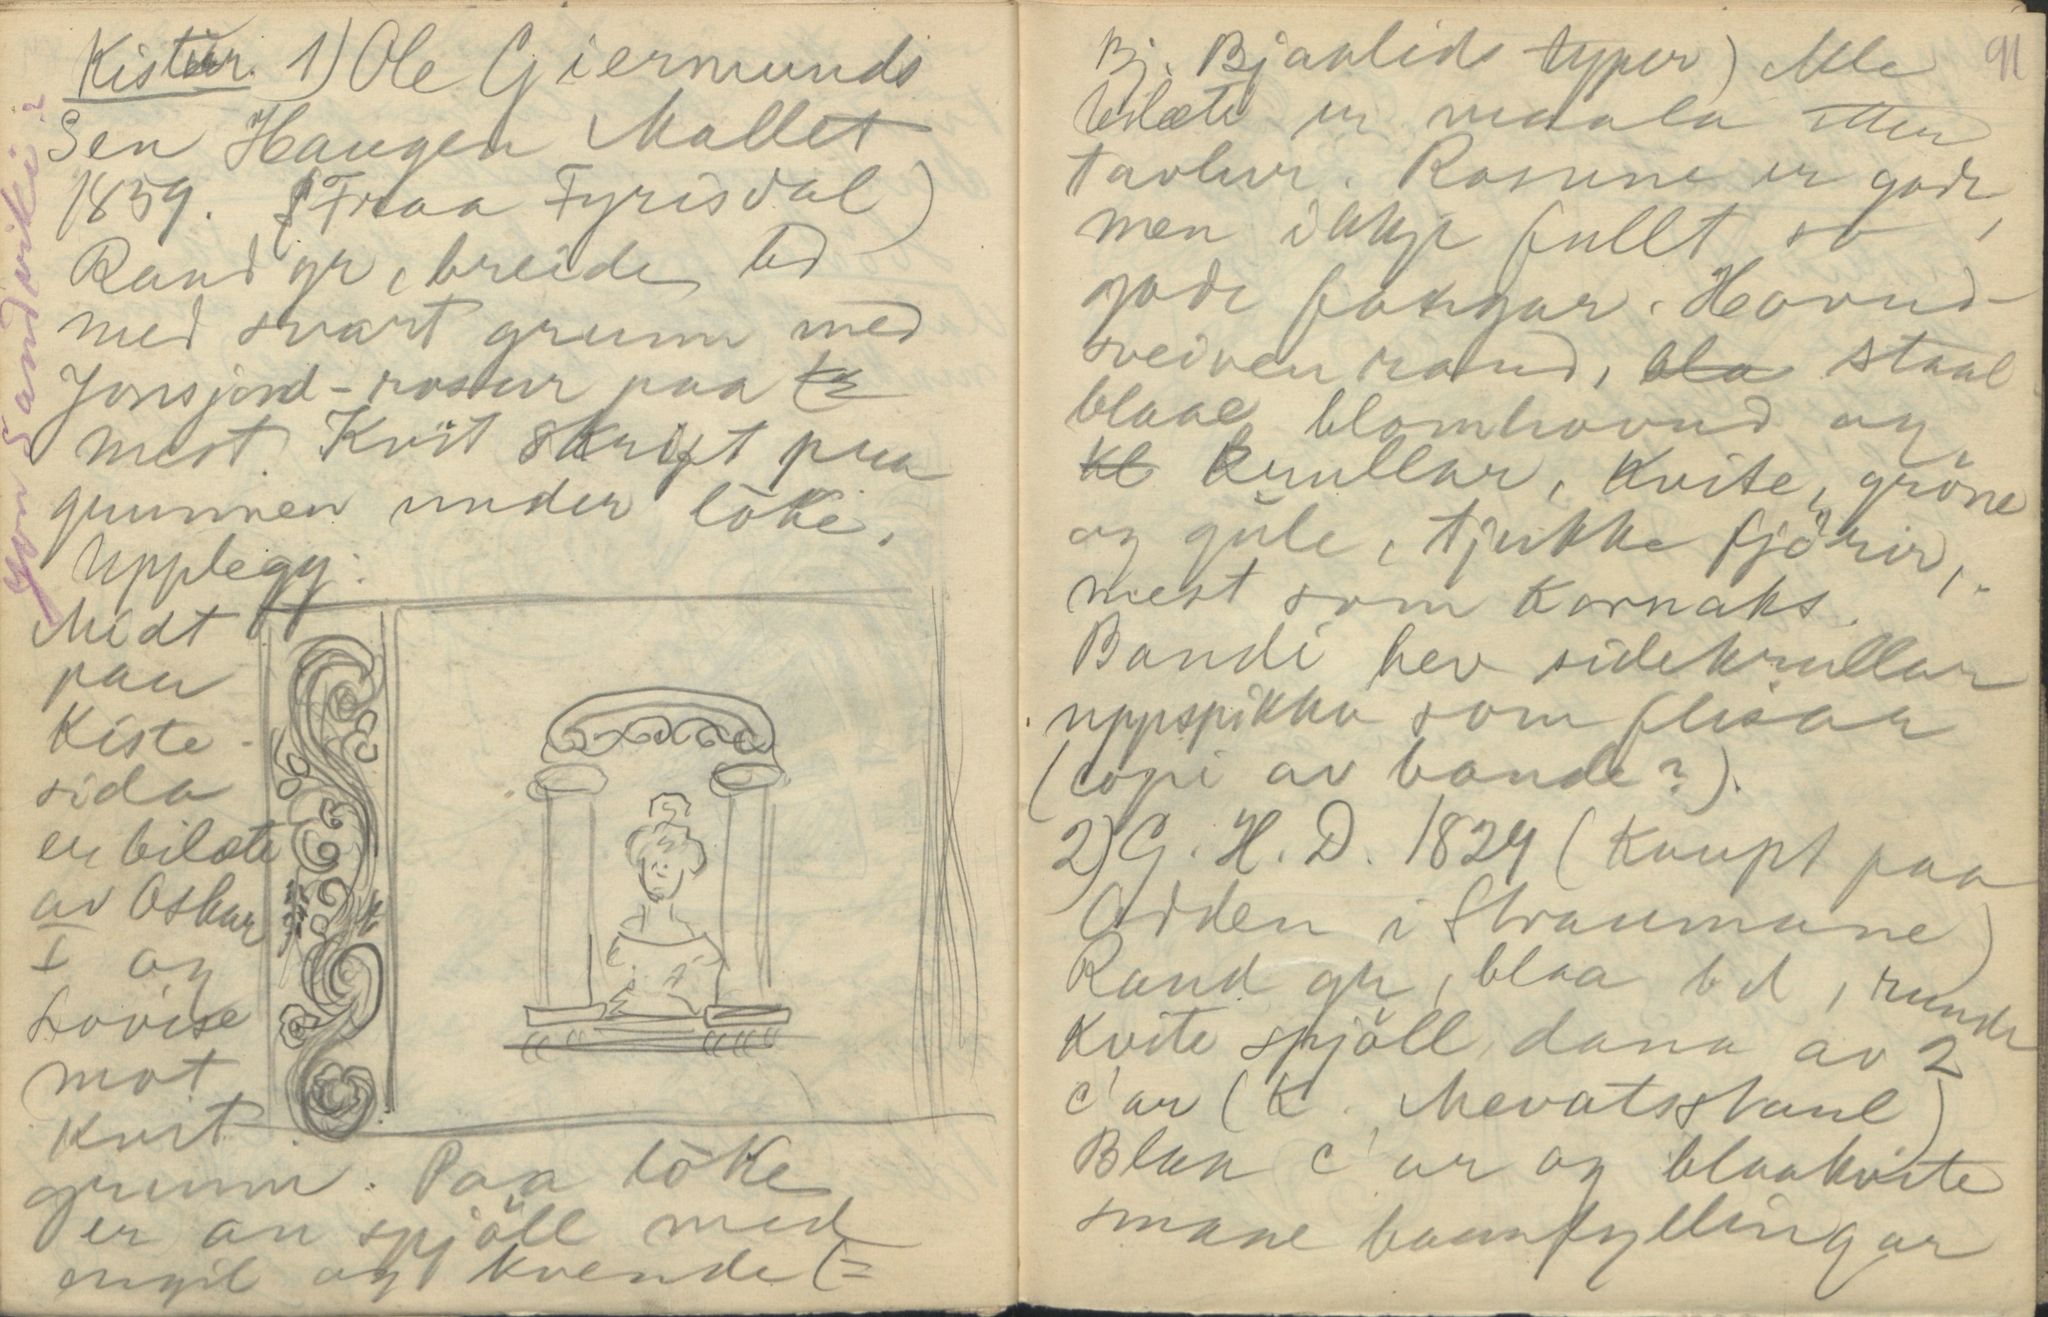 Kistur. 1) Ole Giermunds
Sen Haugen Mallet
1859. (Fraa Fyrisdal)
Rand gr, breide bd
med svart grunn med
Jonsjord-rosur paa
mest. Kvit skrift paa
grunnen under löke.
Upplegg:
Midt
paa
Kiste-
sida
er bilæte
av Oskar
I og
Lovise
mot
kvit
grunn. Paa löke
er au spjöll med
engil og kvende (=
Jon Sandviki?
91
Bj. Bjaalids typer) Alle
bilæti er maala etter
tavlur. Rosune er gode,
men ikkje fullt so
gode fargar. Hovud-
sveiven raud, blaa staal
blaae blomhovud og
kl krullar, kvite, gröne
og gule, tjukke fjörir,
mest som kornaks.
Bandi hev sidekrullar
uppspikka som flisar
(copi av bande?).
2) G. H. D. 1829 (Kaupt paa
Odden i Straumane)
Raud gr, blaa bd, runde
kvite spjöll dana av 2
c'ar (K. Mevatsstaul)
Blaa c'ar og blaakvite
smaae baamfyllingar